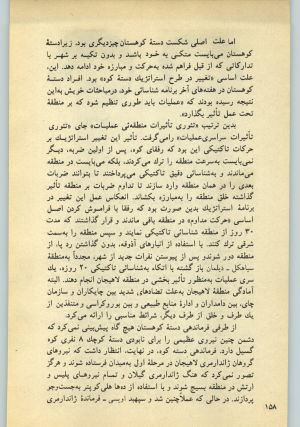 اما علت اصلی شکست دستهٔ کوهستان چیز دیگری بود. زیرا دستهٔ
کوهستان می‌بایست متکی به خود باشد و بدون تکیه بر شهر با
تدارکاتی که از قبل فراهم شده به‌حرکت و مبارزه خود ادامه دهد. این،
علت اساسی «تغییر در طرح استراتژیک دستهٔ کوه» بود. افراد دستهٔ
کوهستان در هفته‌های آخر برنامه شناسائی خود، درمباحثات خویش به‌این
نتیجه رسیده بودند که «عملیات باید طوری تنظیم شود که بر منطقهٔ
تحت عمل تأثیر بگذارد».
بدین ترتیب «تئوری تأثیرات منطقه‌ئی عملیات» جای «تئوری
تأثیرات سراسری عملیات» را می‌گرفت. تأثیر این تغییر استراتژیک بر
حرکات تاکتیکی این بود که رفقای کوه، پس از اولین ضربه، دیگر
نمی‌بایست به‌سرعت منطقه را ترک می‌کردند، بلکه می‌بایست در منطقه
می‌ماندند و به‌شناسائی دقیق تاکتیکی می‌پرداختند تا بتوانند ضربات
بعدی را در همان منطقه وارد سازند تا تداوم ضربات بر منطقه تأثیر
گذاشته خلق منطقه را به‌مبارزه بکشاند. انعکاس عمل این تغییر در
برنامهٔ استراتژیک بدین صورت بود که رفقا با فراموش کردن اصل
اساسی «حرکت مداوم» در منطقه باقی ماندند و قرار گذاشتند که مدت
۳۰ روز از منطقه شناسائی تاکتیکی نمایند و سپس منطقه را به‌سمت
شرقی ترک کنند. با استفاده از انبارهای آذوقه، بدون گذاشتن رد پا، از
منطقه دور شوند و پس از پیوستن نفرات جدید از شهر، مجدداً به‌منطقهٔ
سیاهکل ـ دیلمان باز گشته با اتکاء به‌شناسائی تاکتیکی ۲۰ روزه، یک
سری عملیات به‌منظور تأثیر بخشی در منطقهٔ لاهیجان انجام دهند. البته
آمادگی منطقهٔ لاهیجان به‌علت تضادهای شدید بین چایکاران و سازمان
چای، بین دامداران و ادارهٔ منابع طبیعی و بین بوروکراسی و متنفذین از
یک طرف و خلق از طرف دیگر، شرائط مناسبی را ارائه می‌کرد.
از طرفی فرماندهی دستهٔ کوهستان هیچ گاه پیش‌بینی نمی‌کرد که
دشمن چنین نیروی عظیمی را برای نابودی دستهٔ کوچک ۸ نفری کوه
گسیل دارد. فرماندهی دسته کوه، در نهایت، انتظار داشت که نیروهای
گروهان ژاندارمری لاهیجان در مرحلهٔ اول به‌میدان فرستاده شوند و هرگز
تصور نمی‌کرد که هنگ ژاندارمری گیلان و تمام نیروهای پلیس و
ارتش در منطقه بسیج شوند و با استفاده از ده‌ها هلی‌کوپتر به‌جست‌وجو
پردازند. در حالی که عملاً چنین شد و سپهبد اویسی ـ فرماندهٔ ژاندارمری
۱۵۸